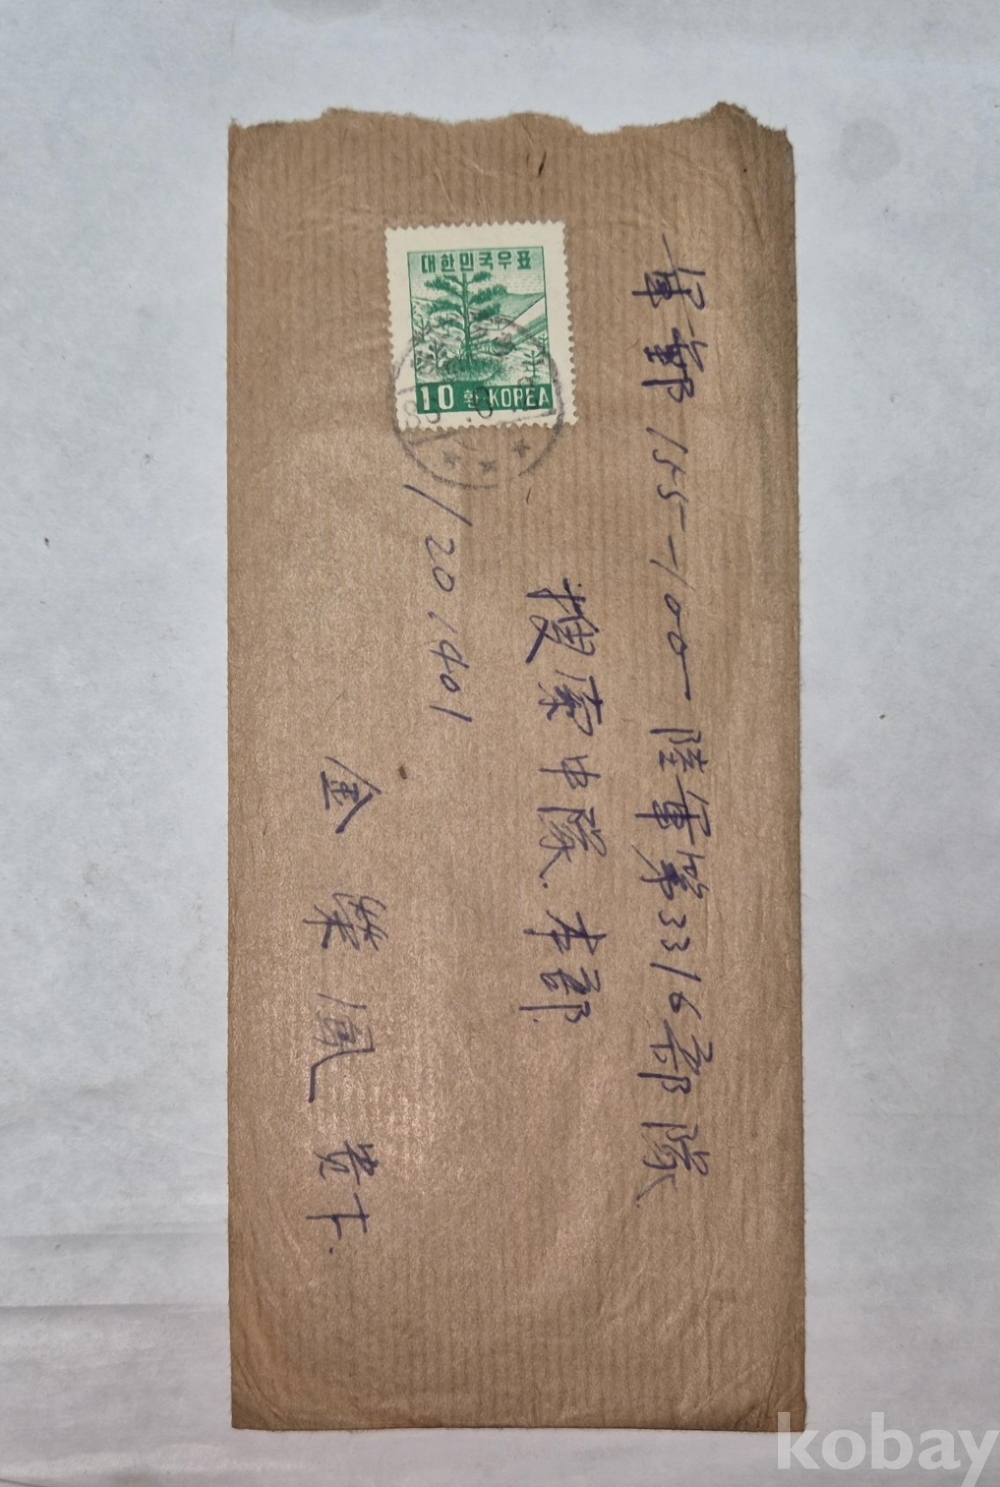 대한민국우표
10 환 KOREA
軍郵 155-100 陸軍第3316部隊
搜索中隊.本部
1201401
金榮鳳 貴下
kobay